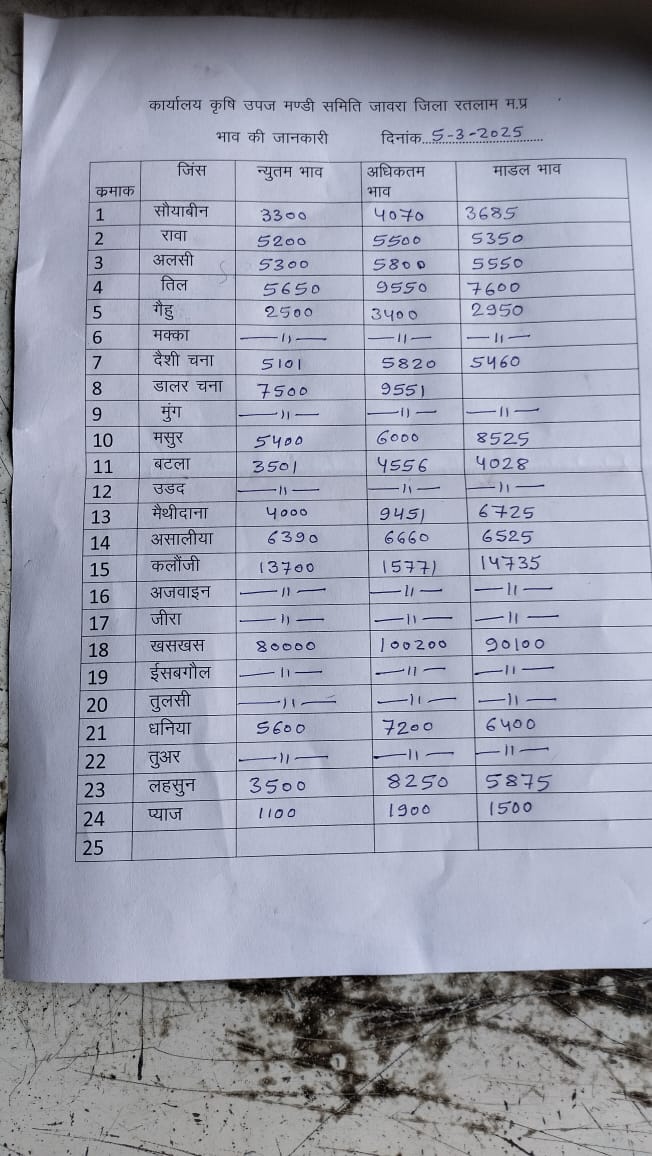 कार्यालय कृषि उपज मण्डी समिति जावरा जिला रतलाम म.प्र
भाव की जानकारी दिनांक..5-3-2025..........
कमाक जिंस न्युतम भाव अधिकतम भाव माडल भाव
1 सौयाबीन 3300 4070 3685
2 रावा 5200 5500 5350
3 अलसी 5300 5800 5550
4 तिल 5650 9550 7600
5 गैहु 2500 3400 2950
6 मक्का —〃— —〃— —〃—
7 दैशी चना 5101 5820 5460
8 डालर चना 7500 9551
9 मुंग —〃— —〃— —〃—
10 मसुर 5400 6000 8525
11 बटला 3501 4556 4028
12 उडद —〃— —〃— —〃—
13 मैथीदाना 4000 9451 6725
14 असालीया 6390 6660 6525
15 कलौंजी 13700 15771 14735
16 अजवाइन —〃— —〃— —〃—
17 जीरा —〃— —〃— —〃—
18 खसखस 80000 100200 90100
19 ईसबगौल —〃— —〃— —〃—
20 तुलसी —〃— —〃— —〃—
21 धनिया 5600 7200 6400
22 तुअर —〃— —〃— —〃—
23 लहसुन 3500 8250 5875
24 प्याज 1100 1900 1500
25